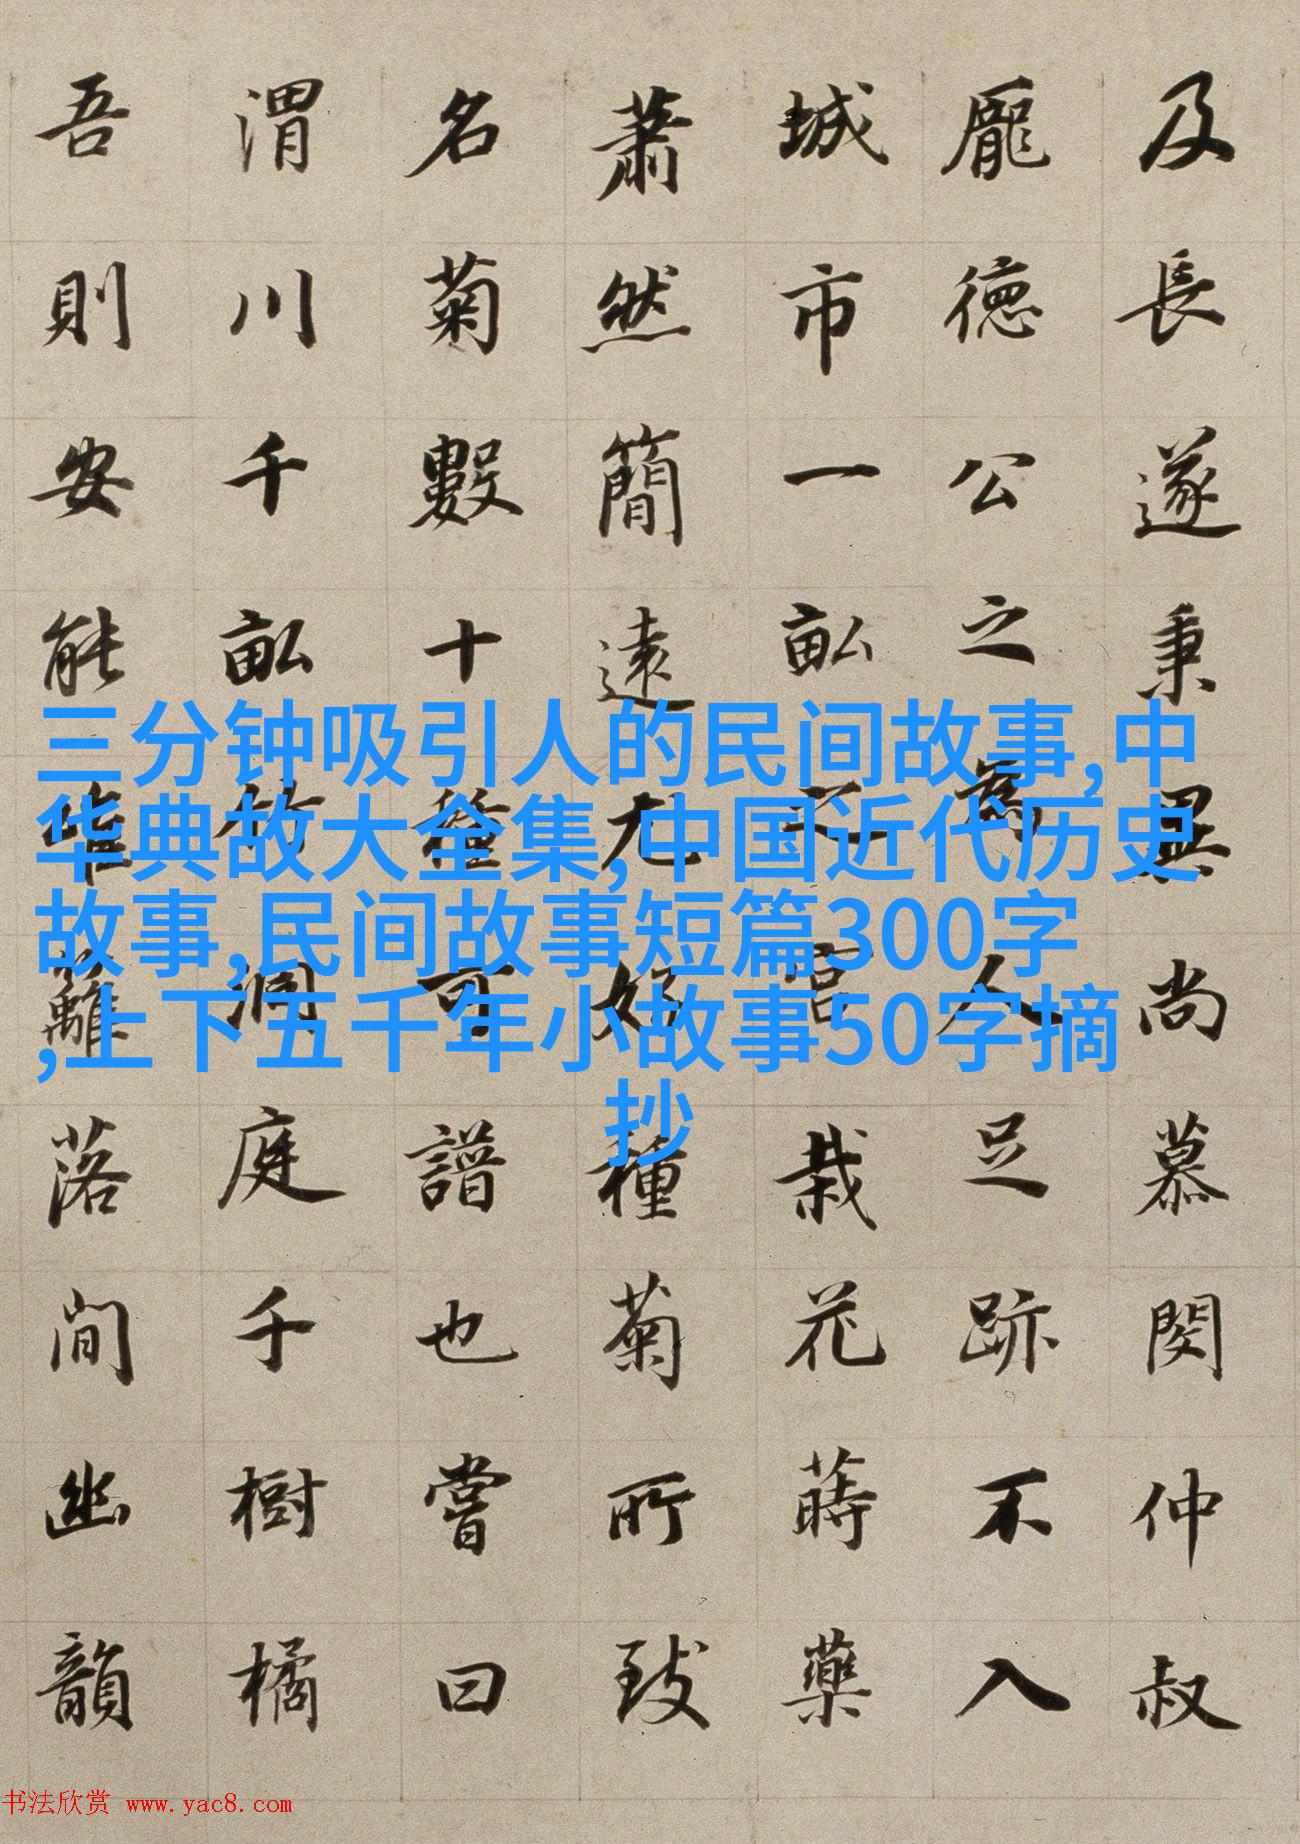 及長遂秉異尚慕閔仲叔
龐徳公之為人足跡不入
城市一畝之宮栽花蒔藥
蕭然簡遠尤好種菊所致
名菊數十種可譜也嘗曰
渭川千畝竹洞庭千樹橘
吾則安能籬落間幽韻
三分钟吸引人的民间故事,中
华典故大全集,中国近代历史
故事,民间故事短篇300字
,上下五千年小故事50字摘
抄
书法欣赏 www.yac8.com